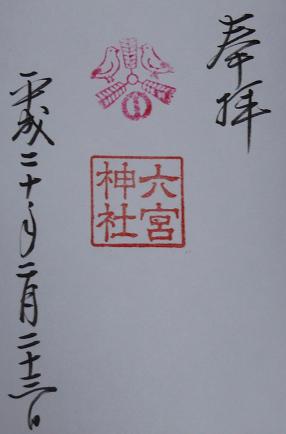 奉拝
六宮
神社
平成二十年二月二十三日